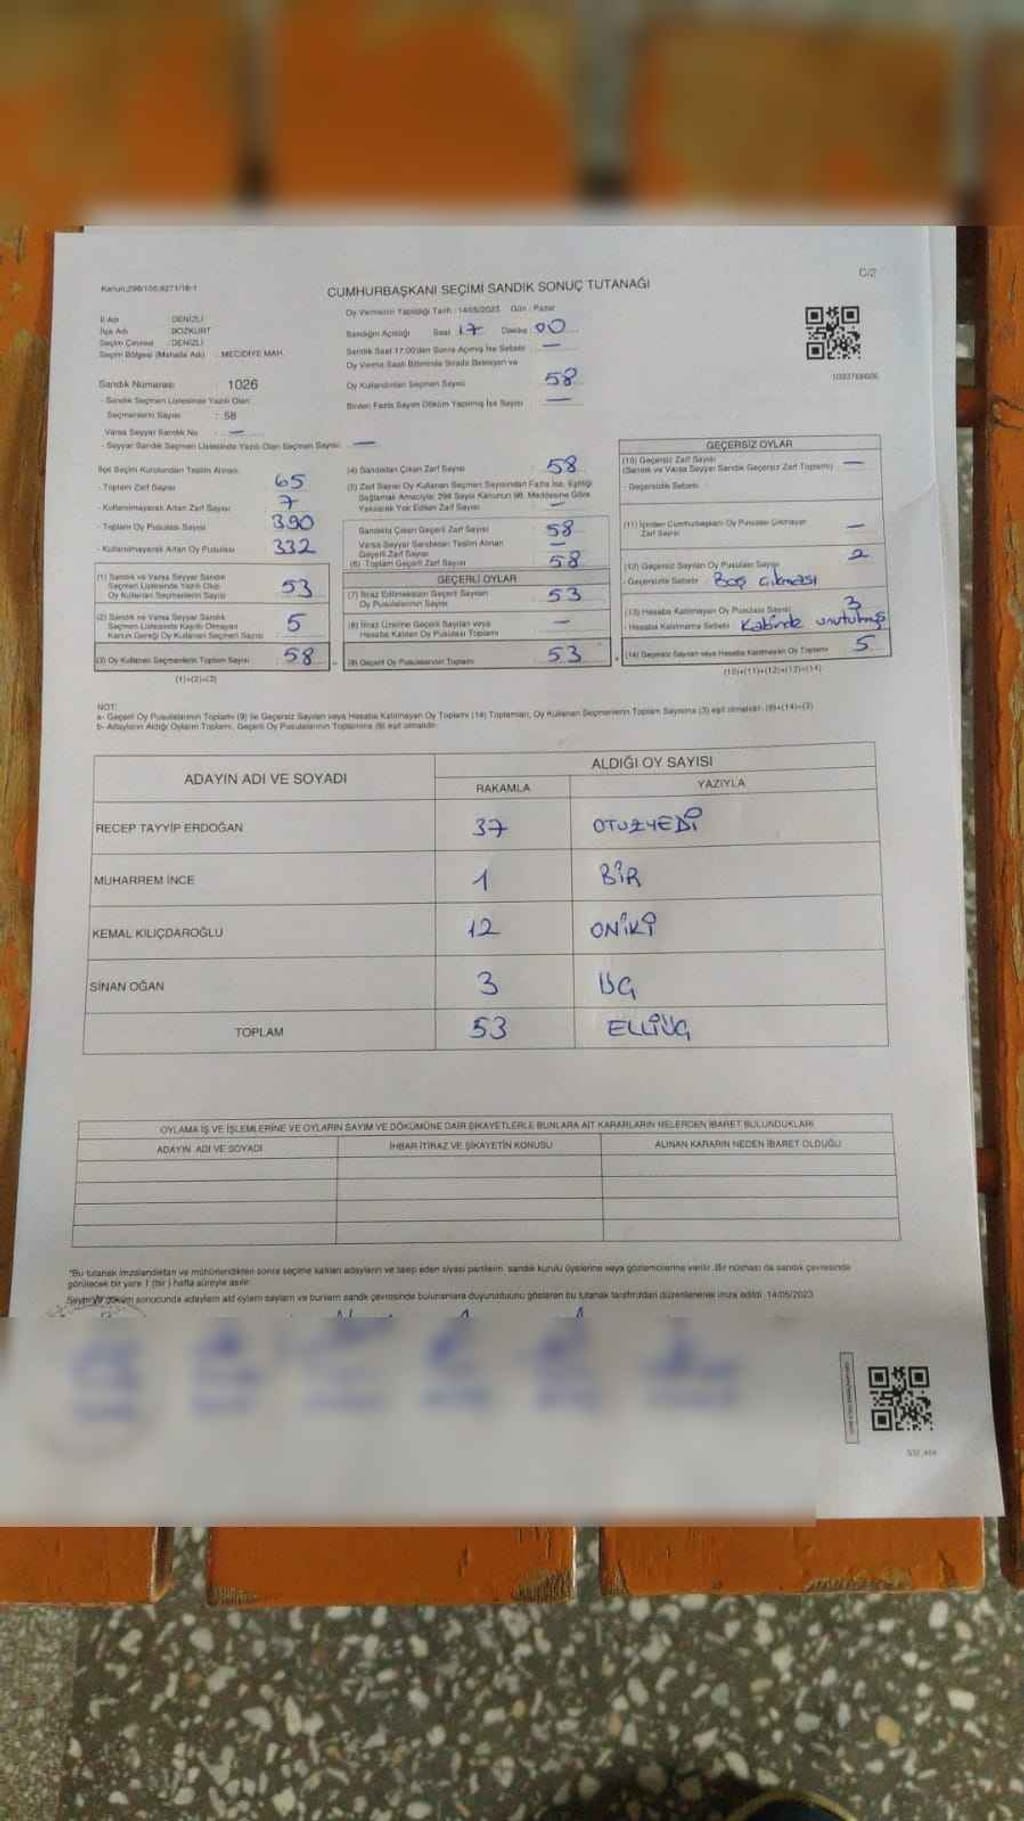 C/2
Kanun:298/105,6271/18-1
CUMHURBAŞKANI SEÇİMİ SANDIK SONUÇ TUTANAĞI
İl Adı : DENİZLİ
İlçe Adı : BOZKURT
Seçim Çevresi : DENİZLİ
Seçim Bölgesi (Mahalle Adı) : MECİDİYE MAH.
Sandık Numarası : 1026
- Sandık Seçmen Listesinde Yazılı Olan
Seçmenlerin Sayısı : 58
- Varsa Seyyar Sandık No : —
- Seyyar Sandık Seçmen Listesinde Yazılı Olan Seçmen Sayısı : —
Oy Vermenin Yapıldığı Tarih : 14/05/2023 Gün : Pazar
Sandığın Açıldığı Saat 17 Dakika 00
Sandık Saat 17:00'den Sonra Açılmış İse Sebebi —
Oy Verme Saati Bitiminde Sırada Bekleyen ve
Oy Kullandırılan Seçmen Sayısı 58
Birden Fazla Sayım Döküm Yapılmış İse Sayısı —
İlçe Seçim Kurulundan Teslim Alınan
- Toplam Zarf Sayısı 65
- Kullanılmayarak Artan Zarf Sayısı 7
- Toplam Oy Pusulası Sayısı 390
- Kullanılmayarak Artan Oy Pusulası 332
(1) Sandık ve Varsa Seyyar Sandık
Seçmen Listesinde Yazılı Olup
Oy Kullanan Seçmenlerin Sayısı 53
(2) Sandık ve Varsa Seyyar Sandık
Seçmen Listesinde Kayıtlı Olmayan
Kanun Gereği Oy Kullanan Seçmen Sayısı 5
(3) Oy Kullanan Seçmenlerin Toplam Sayısı 58
(1)+(2)=(3)
(4) Sandıktan Çıkan Zarf Sayısı 58
(5) Zarf Sayısı Oy Kullanan Seçmen Sayısından Fazla İse, Eşitliği
Sağlamak Amacıyla; 298 Sayılı Kanunun 98. Maddesine Göre
Yakılarak Yok Edilen Zarf Sayısı —
Sandıkta Çıkan Geçerli Zarf Sayısı 58
Varsa Seyyar Sandıktan Teslim Alınan
Geçerli Zarf Sayısı —
(6) Toplam Geçerli Zarf Sayısı 58
GEÇERLİ OYLAR
(7) İtiraz Edilmeksizin Geçerli Sayılan
Oy Pusulalarının Sayısı 53
(8) İtiraz Üzerine Geçerli Sayılan veya
Hesaba Katılan Oy Pusulası Toplamı —
(9) Geçerli Oy Pusulalarının Toplamı 53
GEÇERSİZ OYLAR
(10) Geçersiz Zarf Sayısı
(Sandık ve Varsa Seyyar Sandık Geçersiz Zarf Toplamı) —
- Geçersizlik Sebebi
(11) İçinden Cumhurbaşkanı Oy Pusulası Çıkmayan
Zarf Sayısı —
(12) Geçersiz Sayılan Oy Pusulası Sayısı 2
- Geçersizlik Sebebi Boş çıkması
(13) Hesaba Katılmayan Oy Pusulası Sayısı 3
- Hesaba Katılmama Sebebi Kabinde unutulmuş
(14) Geçersiz Sayılan veya Hesaba Katılmayan Oy Toplamı 5
(10)+(11)+(12)+(13)=(14)
NOT:
a- Geçerli Oy Pusulalarının Toplamı (9) ile Geçersiz Sayılan veya Hesaba Katılmayan Oy Toplamı (14) Toplamları, Oy Kullanan Seçmenlerin Toplam Sayısına (3) eşit olmalıdır. (9)+(14)=(3)
b- Adayların Aldığı Oyların Toplamı, Geçerli Oy Pusulalarının Toplamına (9) eşit olmalıdır.
ADAYIN ADI VE SOYADI
ALDIĞI OY SAYISI
RAKAMLA YAZIYLA
RECEP TAYYİP ERDOĞAN 37 OTUZYEDİ
MUHARREM İNCE 1 BİR
KEMAL KILIÇDAROĞLU 12 ONİKİ
SİNAN OĞAN 3 ÜÇ
TOPLAM 53 ELLİÜÇ
OYLAMA İŞ VE İŞLEMLERİNE VE OYLARIN SAYIM VE DÖKÜMÜNE DAİR ŞİKAYETLERLE BUNLARA AİT KARARLARIN NELERDEN İBARET BULUNDUKLARI
ADAYIN ADI VE SOYADI İHBAR İTİRAZ VE ŞİKAYETİN KONUSU ALINAN KARARIN NEDEN İBARET OLDUĞU
"Bu tutanak imzalandıktan ve mühürlendikten sonra seçime katılan adayların ve talep eden siyasi partilerin sandık kurulu üyelerine veya gözlemcilerine verilir. Bir nüshası da sandık çevresinde
görülecek bir yere 1 (bir) hafta süreyle asılır.
Sayım ve döküm sonucunda adayların aldığı oyların sayılarını ve bunların sandık çevresinde bulunanlara duyurulduğunu gösteren bu tutanak tarafımızdan düzenlenerek imza edildi. 14/05/2023